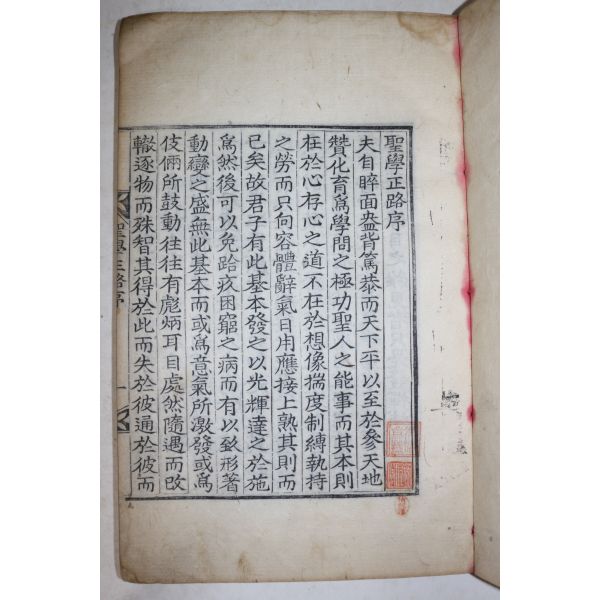 聖學正路序
夫自睟面盎背篤恭而天下平以至於參天地
贊化育爲學問之極功聖人之能事而其本則
在於心存心之道不在於想像揣度制縛執持
之勞而只向容體辭氣日用應接上熟其則而
已矣故君子有此基本發之以光輝達之於施
爲然後可以免跲疚困窮之病而有以致形著
動變之盛無此基本而或爲意氣所激發或爲
伎倆所鼓動往往有彪炳耳目處然隨遇而改
轍逐物而殊智其得於此而失於彼逼於彼而
聖學正路序
一